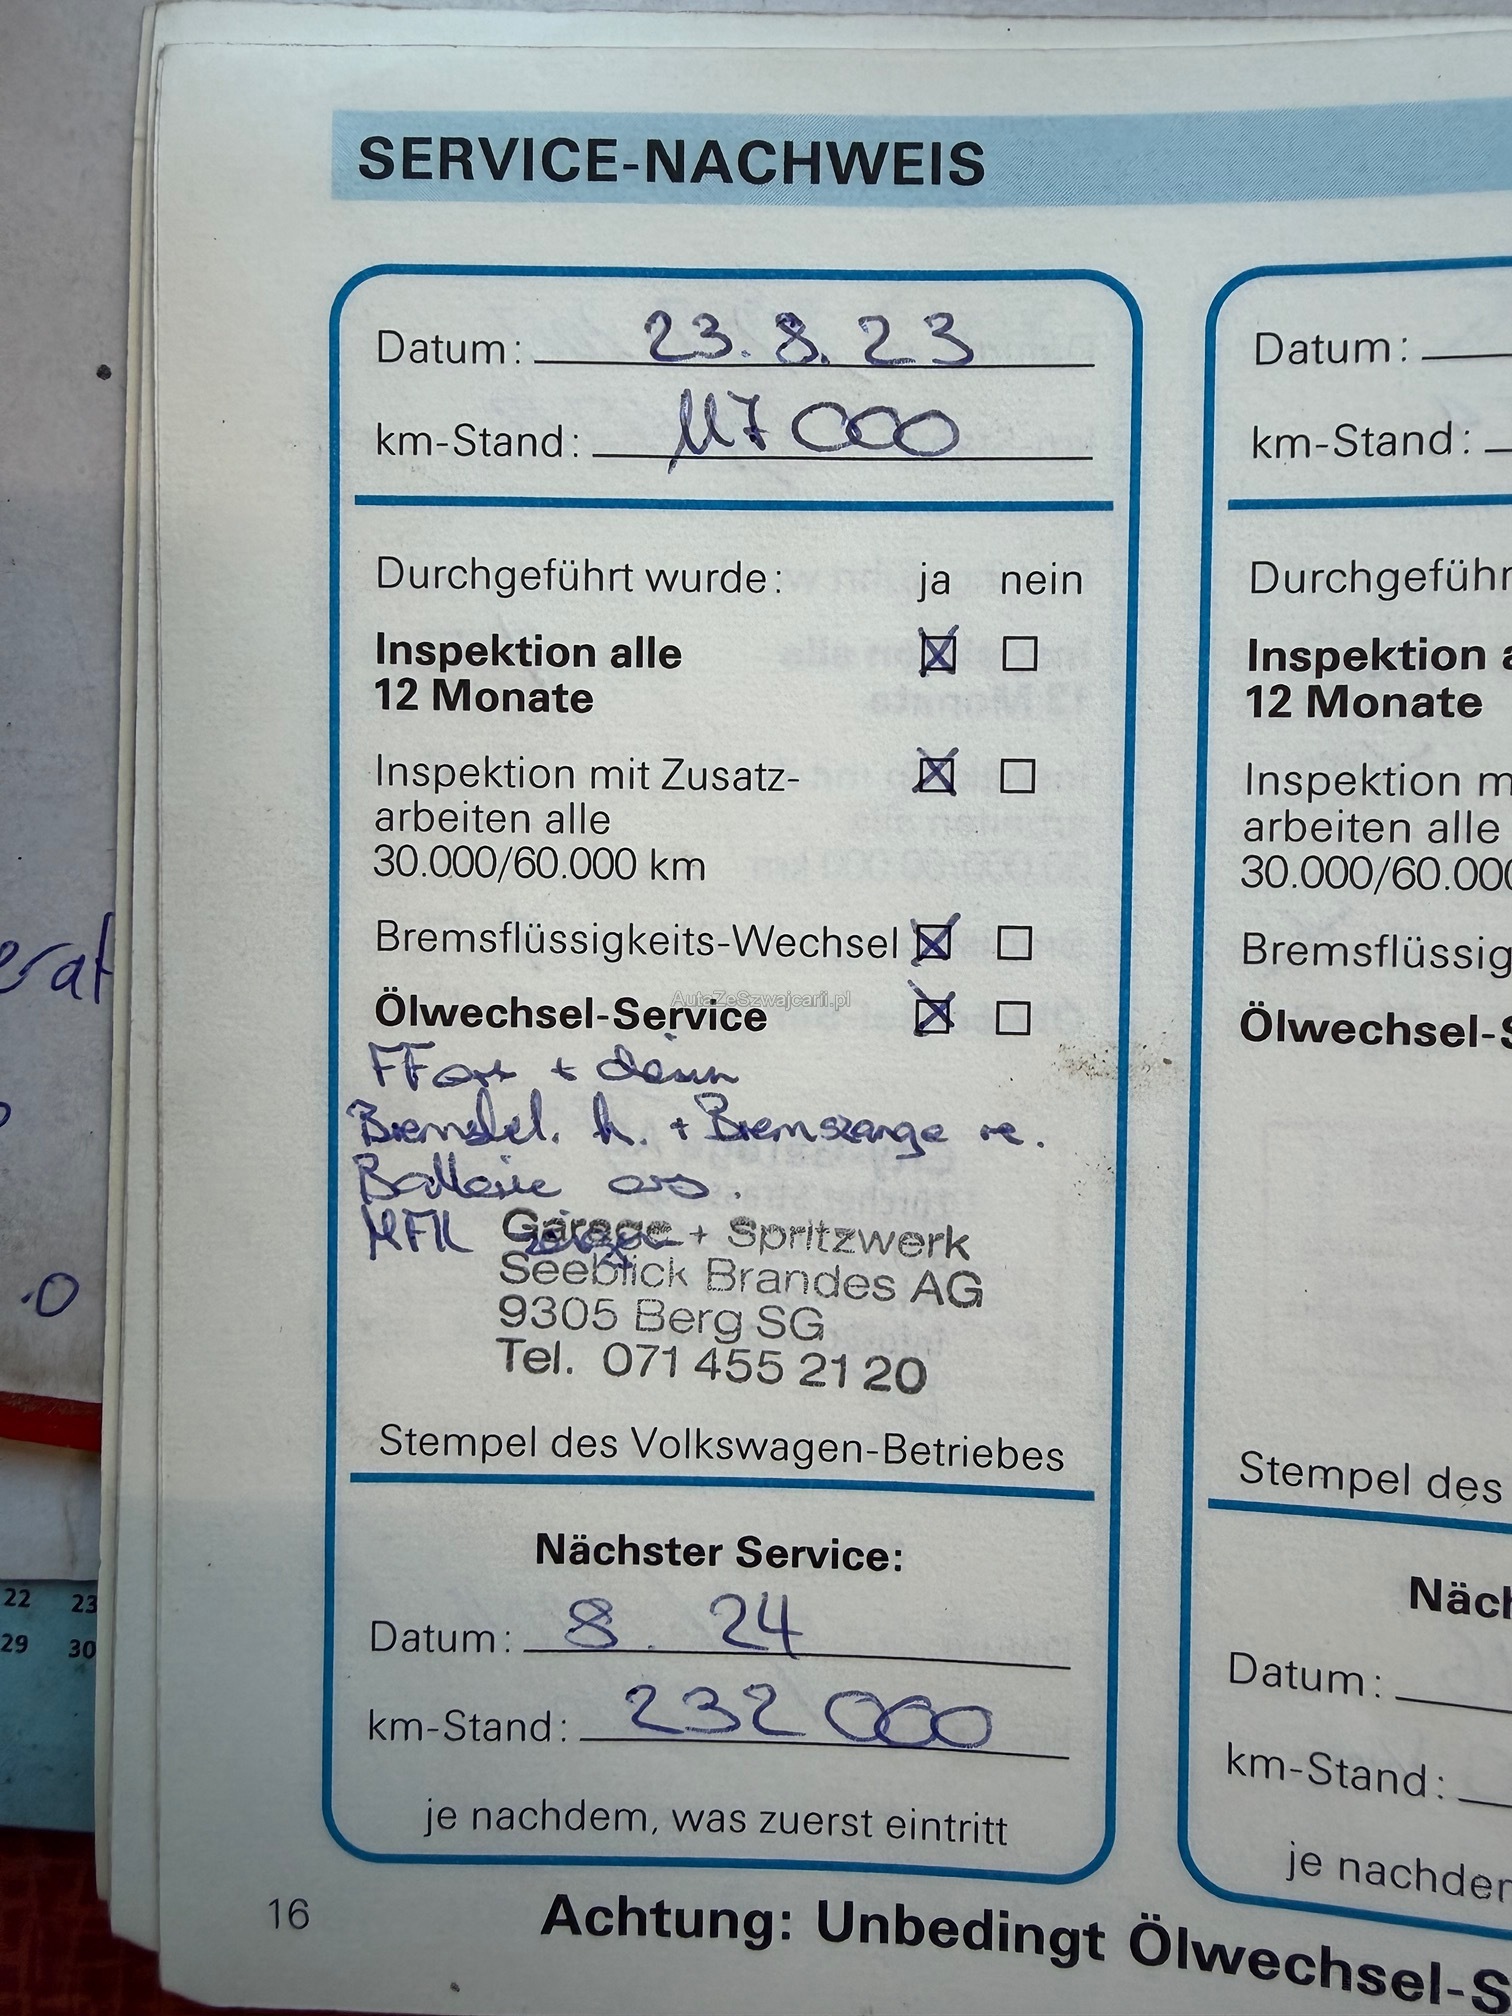 SERVICE-NACHWEIS
Datum: 23.8.23
km-Stand: 117 000
Durchgeführt wurde: ja nein
Inspektion alle
12 Monate
Inspektion mit Zusatz-
arbeiten alle
30.000/60.000 km
Bremsflüssigkeits-Wechsel
Ölwechsel-Service
AutaZeSzwajcarii.pl
+
h. + Bremszange re.
Batterie
MFK
Garage + Spritzwerk
Seeblick Brandes AG
9305 Berg SG
Tel. 071 455 21 20
Stempel des Volkswagen-Betriebes
Nächster Service:
Datum: 8. 24
km-Stand: 232 000
je nachdem, was zuerst eintritt
16
Achtung: Unbedingt Ölwechsel-S
Datum:
km-Stand:
Durchgeführ
Inspektion a
12 Monate
Inspektion m
arbeiten alle
30.000/60.000
Bremsflüssig
Ölwechsel-S
Stempel des
Näch
Datum:
km-Stand:
je nachder
erat
.0
22 23
29 30